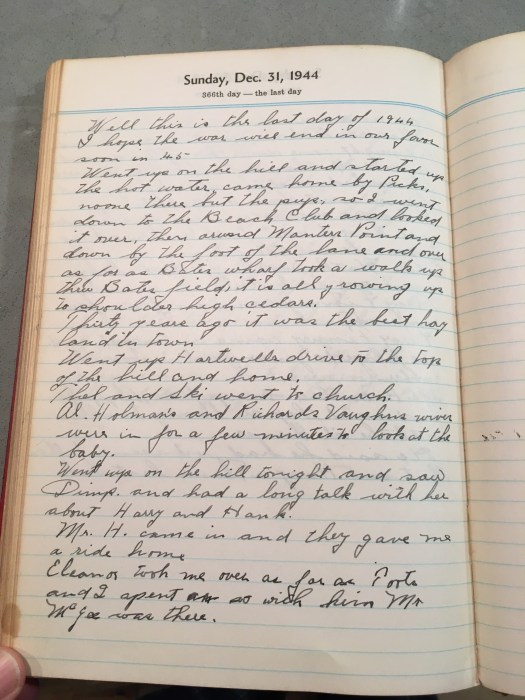 Sunday, Dec. 31, 1944
366th day — the last day
Well this is the last day of 1944
I hope the war will end in our favor
soon in 45
Went up on the hill and started up
the hot water, came home by Pecks,
noone there but the pups, so I went
down to the Beach Club and looked
it over, then around Manters Point and
down by the foot of the lane and over
as far as Bates wharf took a walk up
thru Bates field, it is all growing up
to shoulder high cedars.
Thirty years ago it was the best hay
land in town
Went up Hartwells drive to the top
of the hill and home.
Thel and Ski went to church.
Al. Holmans and Richards Vaughns wives
were in for a few minutes to look at the
baby.
Went up on the hill tonight and saw
Dimp. and had a long talk with her
about Harry and Hank.
Mr. H. came in and they gave me
a ride home
Eleanor took me over as far as Ports
and I spent an so with him Mr
McGee was there.